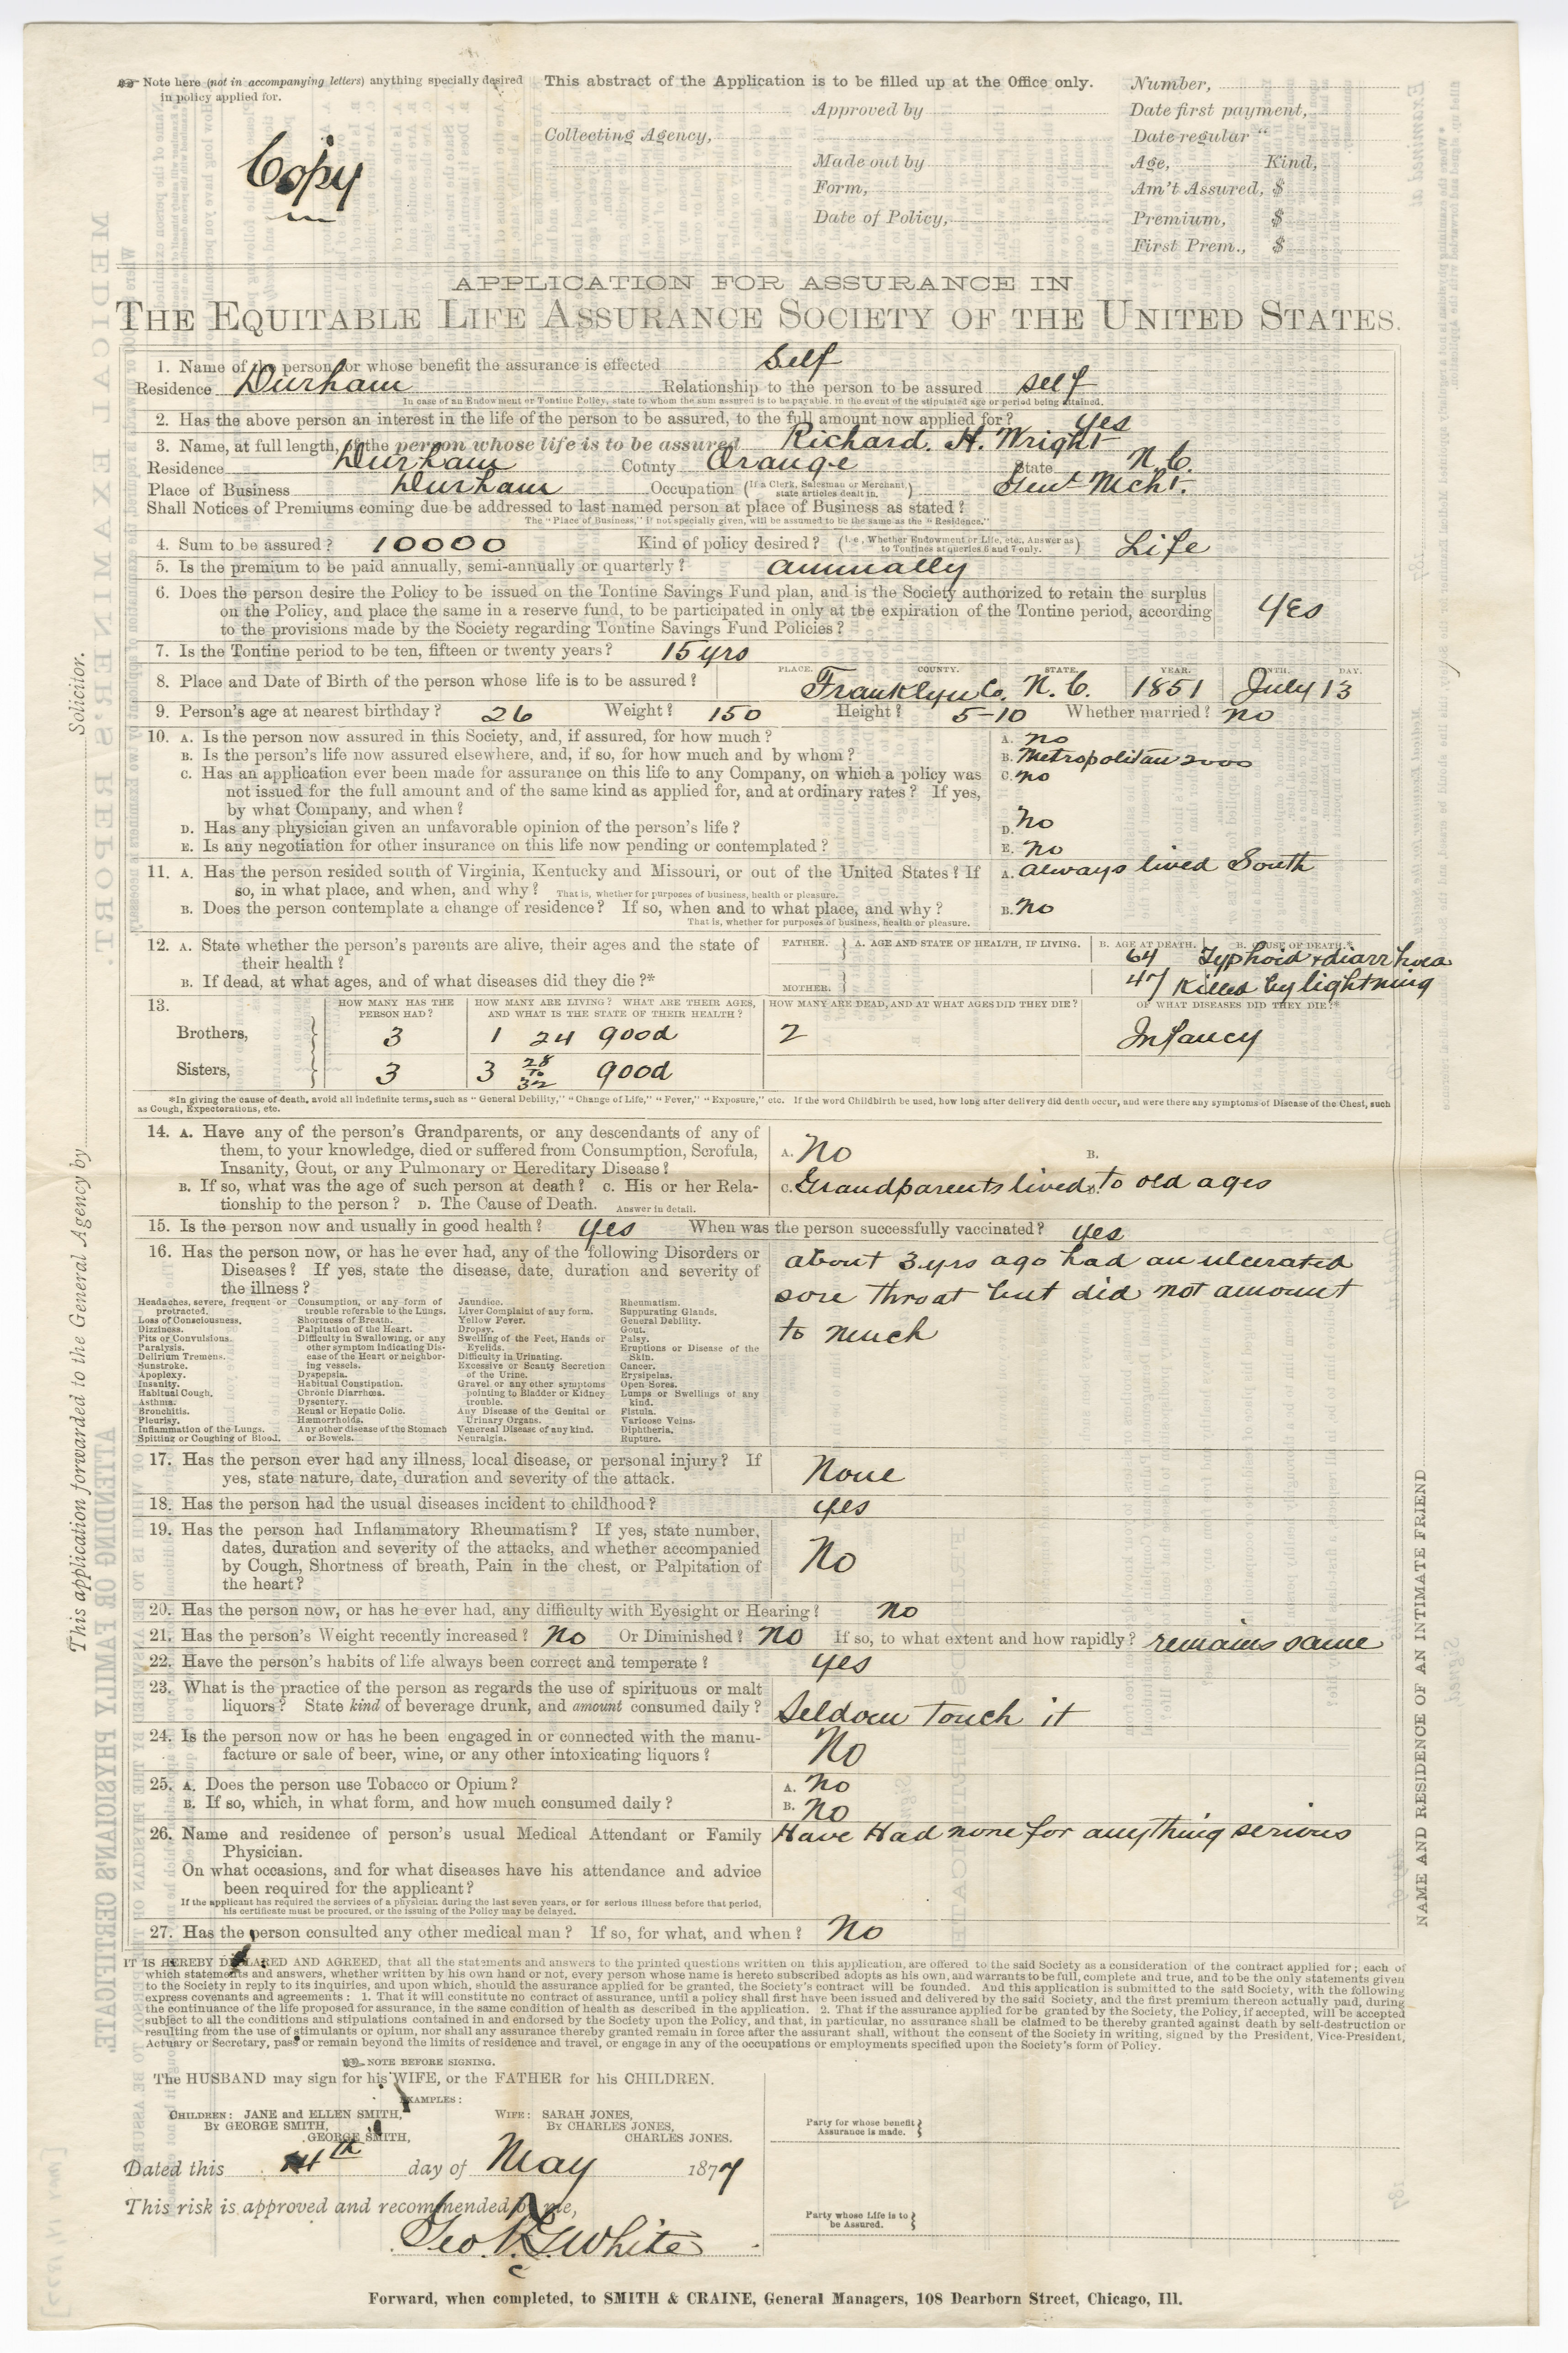 Note here (not in accompanying letters) anything specially desired
in policy applied for.
Copy
This abstract of the Application is to be filled up at the Office only.
Approved by
Collecting Agency,
Made out by
Form,
Date of Policy,
Number,
Date first payment,
Date regular "
Age, Kind,
Am't Assured, $
Premium, $
First Prem., $
APPLICATION FOR ASSURANCE IN
THE EQUITABLE LIFE ASSURANCE SOCIETY OF THE UNITED STATES.
1. Name of the person for whose benefit the assurance is effected Self
Residence Durham Relationship to the person to be assured self
In case of an Endowment or Tontine Policy, state to whom the sum assured is to be payable, in the event of the stipulated age or period being attained.
2. Has the above person an interest in the life of the person to be assured, to the full amount now applied for? yes
3. Name, at full length, of the person whose life is to be assured Richard. H. Wright
Residence Durham County Orange State N. C.
Place of Business Durham Occupation (If a Clerk, Salesman or Merchant, state articles dealt in.) Genl Mcht.
Shall Notices of Premiums coming due be addressed to last named person at place of Business as stated?
The "Place of Business," if not specially given, will be assumed to be the same as the "Residence."
4. Sum to be assured? 10000 Kind of policy desired? (i.e., Whether Endowment or Life, etc., Answer as to Tontines at queries 6 and 7 only.) Life
5. Is the premium to be paid annually, semi-annually or quarterly? annually
6. Does the person desire the Policy to be issued on the Tontine Savings Fund plan, and is the Society authorized to retain the surplus
on the Policy, and place the same in a reserve fund, to be participated in only at the expiration of the Tontine period, according
to the provisions made by the Society regarding Tontine Savings Fund Policies? Yes
7. Is the Tontine period to be ten, fifteen or twenty years? 15 yrs
PLACE. COUNTY. STATE. YEAR. MONTH. DAY.
8. Place and Date of Birth of the person whose life is to be assured? Franklyn Co. N. C. 1851 July 13
9. Person's age at nearest birthday? 26 Weight? 150 Height? 5-10 Whether married? no
10. A. Is the person now assured in this Society, and, if assured, for how much? A. no
B. Is the person's life now assured elsewhere, and, if so, for how much and by whom? B. Metropolitan 2000
C. Has an application ever been made for assurance on this life to any Company, on which a policy was C. no
not issued for the full amount and of the same kind as applied for, and at ordinary rates? If yes,
by what Company, and when?
D. Has any physician given an unfavorable opinion of the person's life? D. no
E. Is any negotiation for other insurance on this life now pending or contemplated? E. no
11. A. Has the person resided south of Virginia, Kentucky and Missouri, or out of the United States? If A. always lived South
so, in what place, and when, and why? That is, whether for purposes of business, health or pleasure.
B. Does the person contemplate a change of residence? If so, when and to what place, and why? B. no
That is, whether for purposes of business, health or pleasure.
12. A. State whether the person's parents are alive, their ages and the state of
their health?
B. If dead, at what ages, and of what diseases did they die?*
FATHER. A. AGE AND STATE OF HEALTH, IF LIVING. B. AGE AT DEATH. B. CAUSE OF DEATH.*
64 Typhoid + diarrhoea
MOTHER. 47 Killed by lightning
13. HOW MANY HAS THE PERSON HAD? HOW MANY ARE LIVING? WHAT ARE THEIR AGES, AND WHAT IS THE STATE OF THEIR HEALTH? HOW MANY ARE DEAD, AND AT WHAT AGES DID THEY DIE? OF WHAT DISEASES DID THEY DIE?*
Brothers, 3 1 24 good 2 Infancy
Sisters, 3 3 28 to 32 good
*In giving the cause of death, avoid all indefinite terms, such as "General Debility," "Change of Life," "Fever," "Exposure," etc. If the word Childbirth be used, how long after delivery did death occur, and were there any symptoms of Disease of the Chest, such
as Cough, Expectorations, etc.
14. A. Have any of the person's Grandparents, or any descendants of any of
them, to your knowledge, died or suffered from Consumption, Scrofula,
Insanity, Gout, or any Pulmonary or Hereditary Disease?
A. No B.
B. If so, what was the age of such person at death? C. His or her Rela-
tionship to the person? D. The Cause of Death. Answer in detail.
C. Grandparents lived to old ages
15. Is the person now and usually in good health? yes When was the person successfully vaccinated? yes
16. Has the person now, or has he ever had, any of the following Disorders or
Diseases? If yes, state the disease, date, duration and severity of
the illness?
about 3 yrs ago had an ulcerated
sore throat but did not amount
to much
Headaches, severe, frequent or
protracted.
Loss of Consciousness.
Dizziness.
Fits or Convulsions.
Paralysis.
Delirium Tremens.
Sunstroke.
Apoplexy.
Insanity.
Habitual Cough.
Asthma.
Bronchitis.
Pleurisy.
Inflammation of the Lungs.
Spitting or Coughing of Blood.
Consumption, or any form of
trouble referable to the Lungs.
Shortness of Breath.
Palpitation of the Heart.
Difficulty in Swallowing, or any
other symptom indicating Dis-
ease of the Heart or neighbor-
ing vessels.
Dyspepsia.
Habitual Constipation.
Chronic Diarrhœa.
Dysentery.
Renal or Hepatic Colic.
Hæmorrhoids.
Any other disease of the Stomach
or Bowels.
Jaundice.
Liver Complaint of any form.
Yellow Fever.
Dropsy.
Swelling of the Feet, Hands or
Eyelids.
Difficulty in Urinating.
Excessive or Scanty Secretion
of the Urine.
Gravel or any other symptoms
pointing to Bladder or Kidney
trouble.
Any Disease of the Genital or
Urinary Organs.
Venereal Disease of any kind.
Neuralgia.
Rheumatism.
Suppurating Glands.
General Debility.
Gout.
Palsy.
Eruptions or Disease of the
Skin.
Cancer.
Erysipelas.
Open Sores.
Lumps or Swellings of any
kind.
Fistula.
Varicose Veins.
Diphtheria.
Rupture.
17. Has the person ever had any illness, local disease, or personal injury? If
yes, state nature, date, duration and severity of the attack.
None
18. Has the person had the usual diseases incident to childhood? yes
19. Has the person had Inflammatory Rheumatism? If yes, state number,
dates, duration and severity of the attacks, and whether accompanied
by Cough, Shortness of breath, Pain in the chest, or Palpitation of
the heart?
No
20. Has the person now, or has he ever had, any difficulty with Eyesight or Hearing? no
21. Has the person's Weight recently increased? No Or Diminished? No If so, to what extent and how rapidly? remains same
22. Have the person's habits of life always been correct and temperate? yes
23. What is the practice of the person as regards the use of spirituous or malt
liquors? State kind of beverage drunk, and amount consumed daily? Seldom touch it
24. Is the person now or has he been engaged in or connected with the manu-
facture or sale of beer, wine, or any other intoxicating liquors? No
25. A. Does the person use Tobacco or Opium? A. no
B. If so, which, in what form, and how much consumed daily? B. no
26. Name and residence of person's usual Medical Attendant or Family Have Had none for anything serious
Physician.
On what occasions, and for what diseases have his attendance and advice
been required for the applicant?
If the applicant has required the services of a physician during the last seven years, or for serious illness before that period,
his certificate must be procured, or the issuing of the Policy may be delayed.
27. Has the person consulted any other medical man? If so, for what, and when? No
IT IS HEREBY DECLARED AND AGREED, that all the statements and answers to the printed questions written on this application, are offered to the said Society as a consideration of the contract applied for; each of
which statements and answers, whether written by his own hand or not, every person whose name is hereto subscribed adopts as his own, and warrants to be full, complete and true, and to be the only statements given
to the Society in reply to its inquiries, and upon which, should the assurance applied for be granted, the Society's contract will be founded. And this application is submitted to the said Society, with the following
express covenants and agreements: 1. That it will constitute no contract of assurance, until a policy shall first have been issued and delivered by the said Society, and the first premium thereon actually paid, during
the continuance of the life proposed for assurance, in the same condition of health as described in the application. 2. That if the assurance applied for be granted by the Society, the Policy, if accepted, will be accepted
subject to all the conditions and stipulations contained in and endorsed by the Society upon the Policy, and that, in particular, no assurance shall be claimed to be thereby granted against death by self-destruction or
resulting from the use of stimulants or opium, nor shall any assurance thereby granted remain in force after the assurant shall, without the consent of the Society in writing, signed by the President, Vice-President,
Actuary or Secretary, pass or remain beyond the limits of residence and travel, or engage in any of the occupations or employments specified upon the Society's form of Policy.
NOTE BEFORE SIGNING.
The HUSBAND may sign for his WIFE, or the FATHER for his CHILDREN.
EXAMPLES:
CHILDREN: JANE and ELLEN SMITH, WIFE: SARAH JONES,
By GEORGE SMITH, By CHARLES JONES,
GEORGE SMITH, CHARLES JONES.
Party for whose benefit
Assurance is made.
Dated this 14th day of May 1877
This risk is approved and recommended by me,
Party whose Life is to
be Assured.
Geo. White
Forward, when completed, to SMITH & CRAINE, General Managers, 108 Dearborn Street, Chicago, Ill.
This application forwarded to the General Agency by Solicitor.
NAME AND RESIDENCE OF AN INTIMATE FRIEND